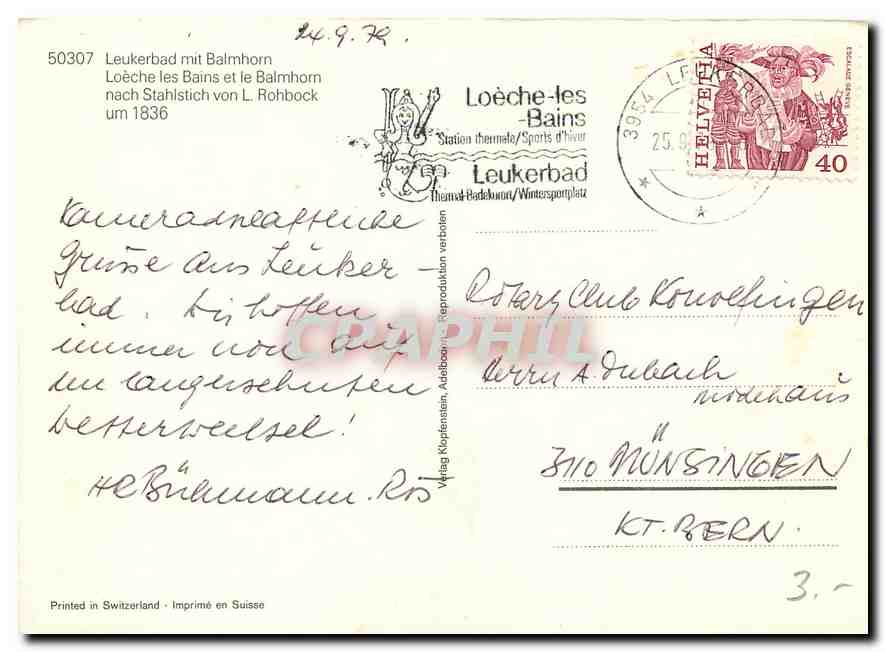 24.9.79.
50307 Leukerbad mit Balmhorn
Loèche les Bains et le Balmhorn
nach Stahlstich von L. Rohbock
um 1836
Loèche-les
-Bains
Station thermale/Sports d'hiver
Leukerbad
Thermal-Badekurort/Wintersportplatz
3954 LEUKERBAD
25.9
HELVETIA
ESCALADE GENÈVE
40
Kameradschaftliche
Grüsse aus Leuker-
bad. Wir hoffen
immer noch auf
den langersehnten
Wetterwechsel!
Verlag Klopfenstein, Adelboden Reproduktion verboten
CPAPHIL
Rotary Club Konolfingen
Herrn A. Dubach
Modehaus
3110 MÜNSINGEN
KT. BERN.
3.-
Printed in Switzerland - Imprimé en Suisse